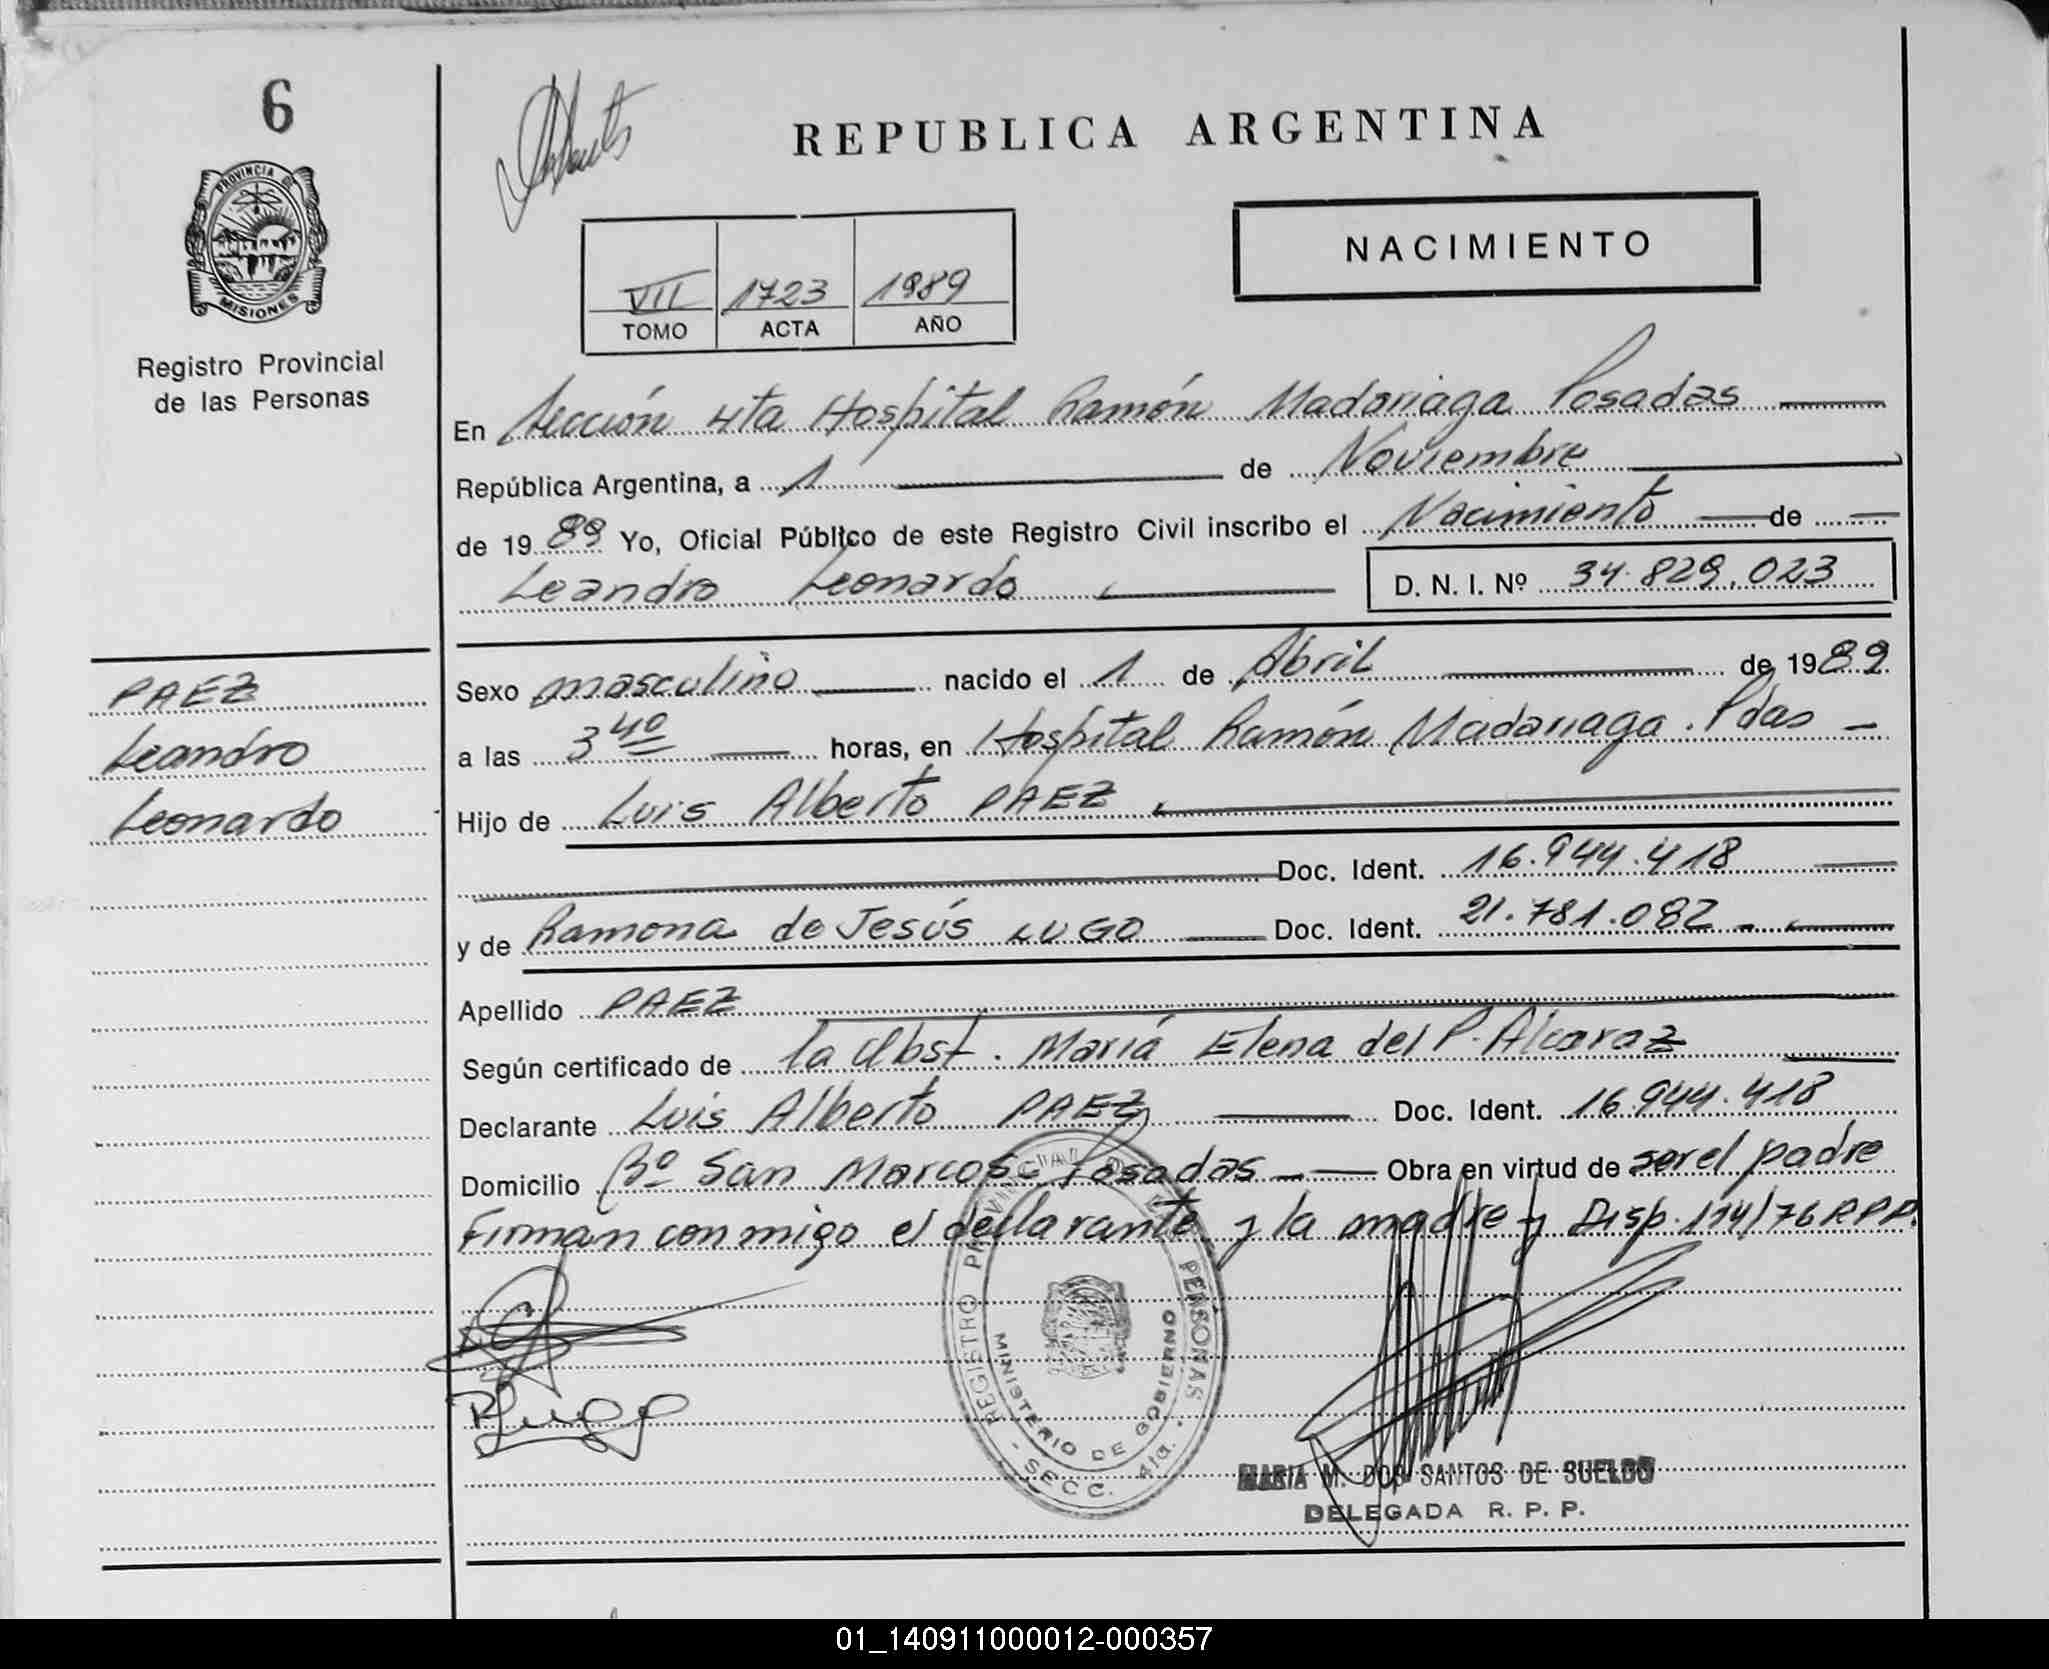 6
REPUBLICA ARGENTINA
PROVINCIA DE
MISIONES
NACIMIENTO
VII 1723 1989
TOMO ACTA AÑO
Registro Provincial
de las Personas
En Sección 4ta Hospital Ramón Madariaga Posadas
República Argentina, a 1 de Noviembre
de 1989 Yo, Oficial Público de este Registro Civil inscribo el Nacimiento de
Leandro Leonardo D. N. I. Nº 34.829.023
Sexo masculino nacido el 1 de Abril de 1989
PAEZ
Leandro
Leonardo
a las 3 40 horas, en Hospital Ramón Madariaga. Pdas
Hijo de Luis Alberto PAEZ
Doc. Ident. 16.944.418
y de Ramona de Jesús LUGO Doc. Ident. 21.781.082
Apellido PAEZ
Según certificado de la Obst. María Elena del P. Alcaraz
Declarante Luis Alberto PAEZ Doc. Ident. 16.944.418
Domicilio Bº San Marcos Posadas Obra en virtud de ser el padre
Firman conmigo el declarante y la madre y Disp. 114/76 RPP.
RLugo
REGISTRO PROVINCIAL DE LAS PERSONAS
MINISTERIO DE GOBIERNO
SECC. 4ta.
MARIA M. DOS SANTOS DE SUELDO
DELEGADA R. P. P.
01_140911000012-000357